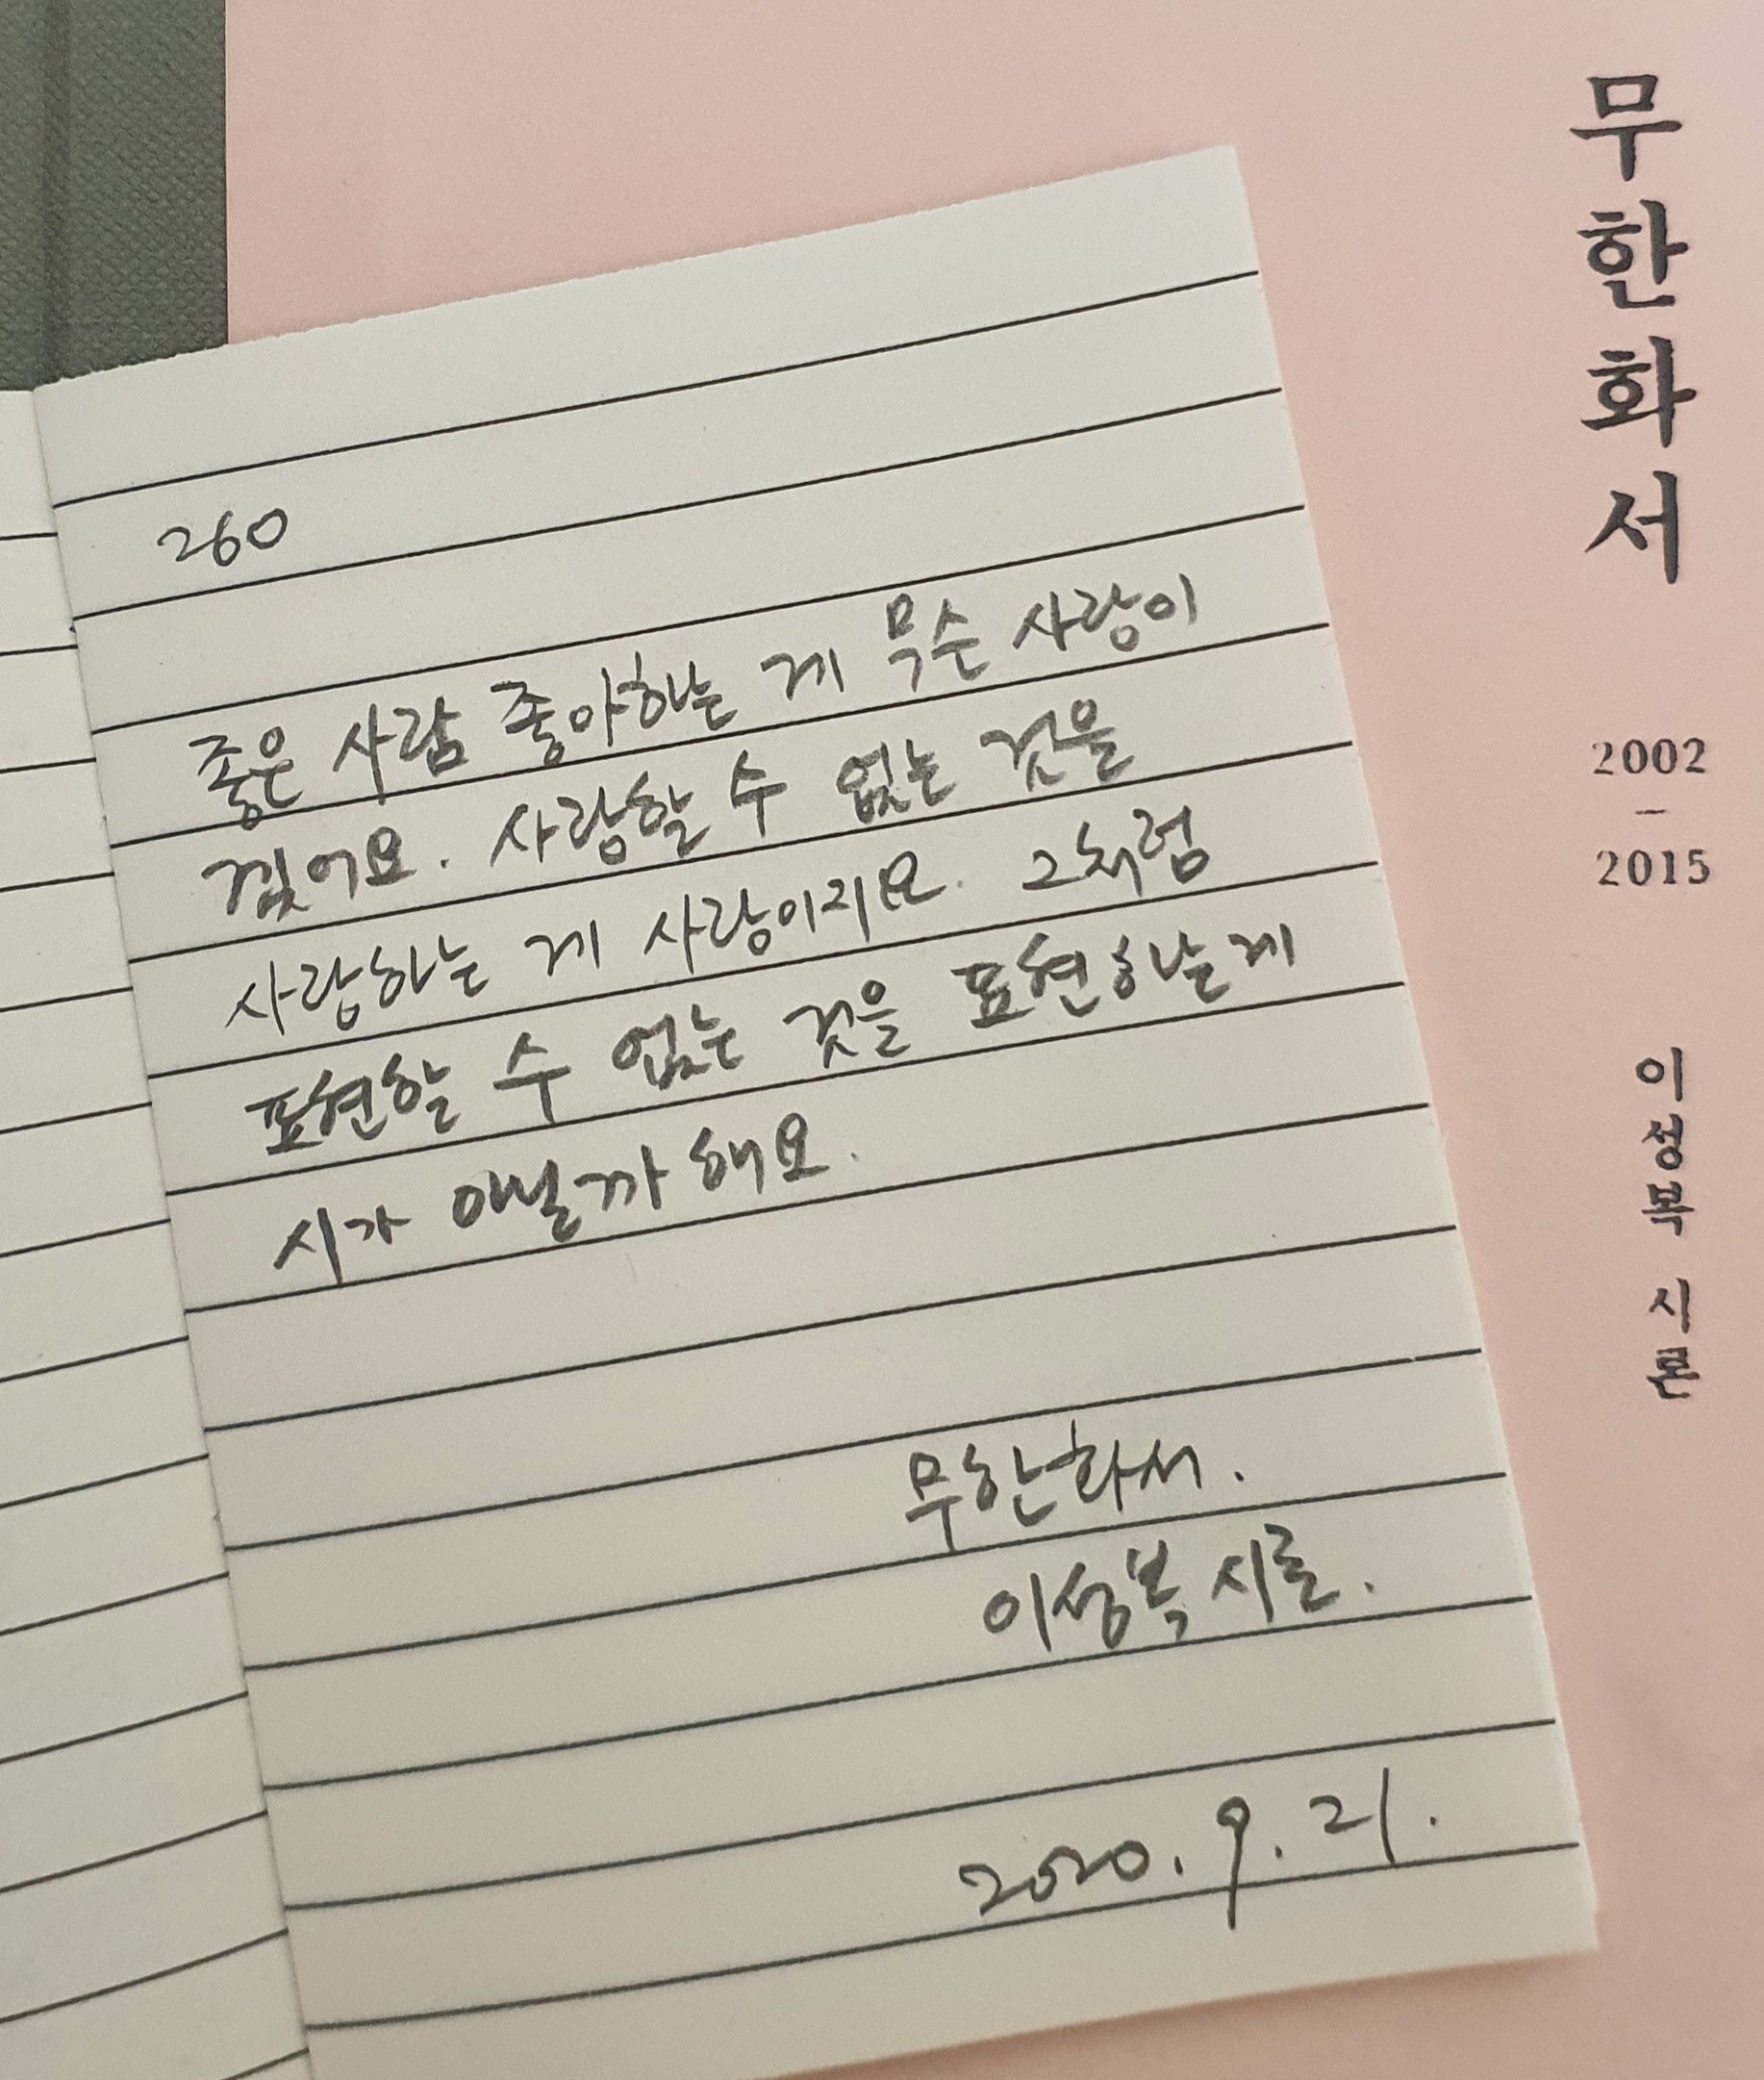 260
좋은 사람 좋아하는 게 무슨 사랑이
겠어요. 사랑할 수 없는 것을
사랑하는 게 사랑이지요. 그처럼
표현할 수 없는 것을 표현하는게
시가 아닐까 해요.
무한화서.
이성복 시론.
2020. 9. 21.
무한화서
2002
–
2015
이성복 시론